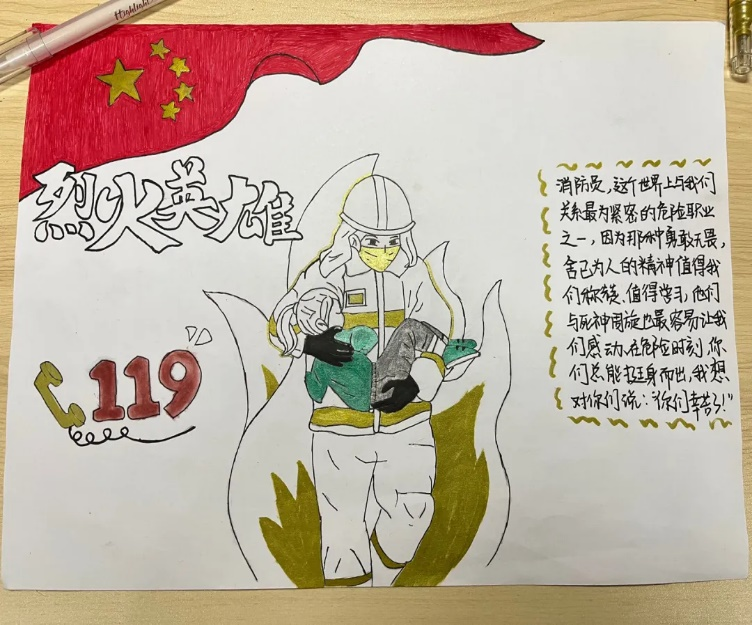 Highlight
烈火英雄
119
消防员,这个世界上与我们
关系最为紧密的危险职业
之一,因为那种勇敢无畏,
舍己为人的精神值得我
们称赞、值得学习,他们
与死神周旋也最容易让我
们感动.在危险时刻,你
们总能挺身而出,我想
对你们说:“你们辛苦了!”